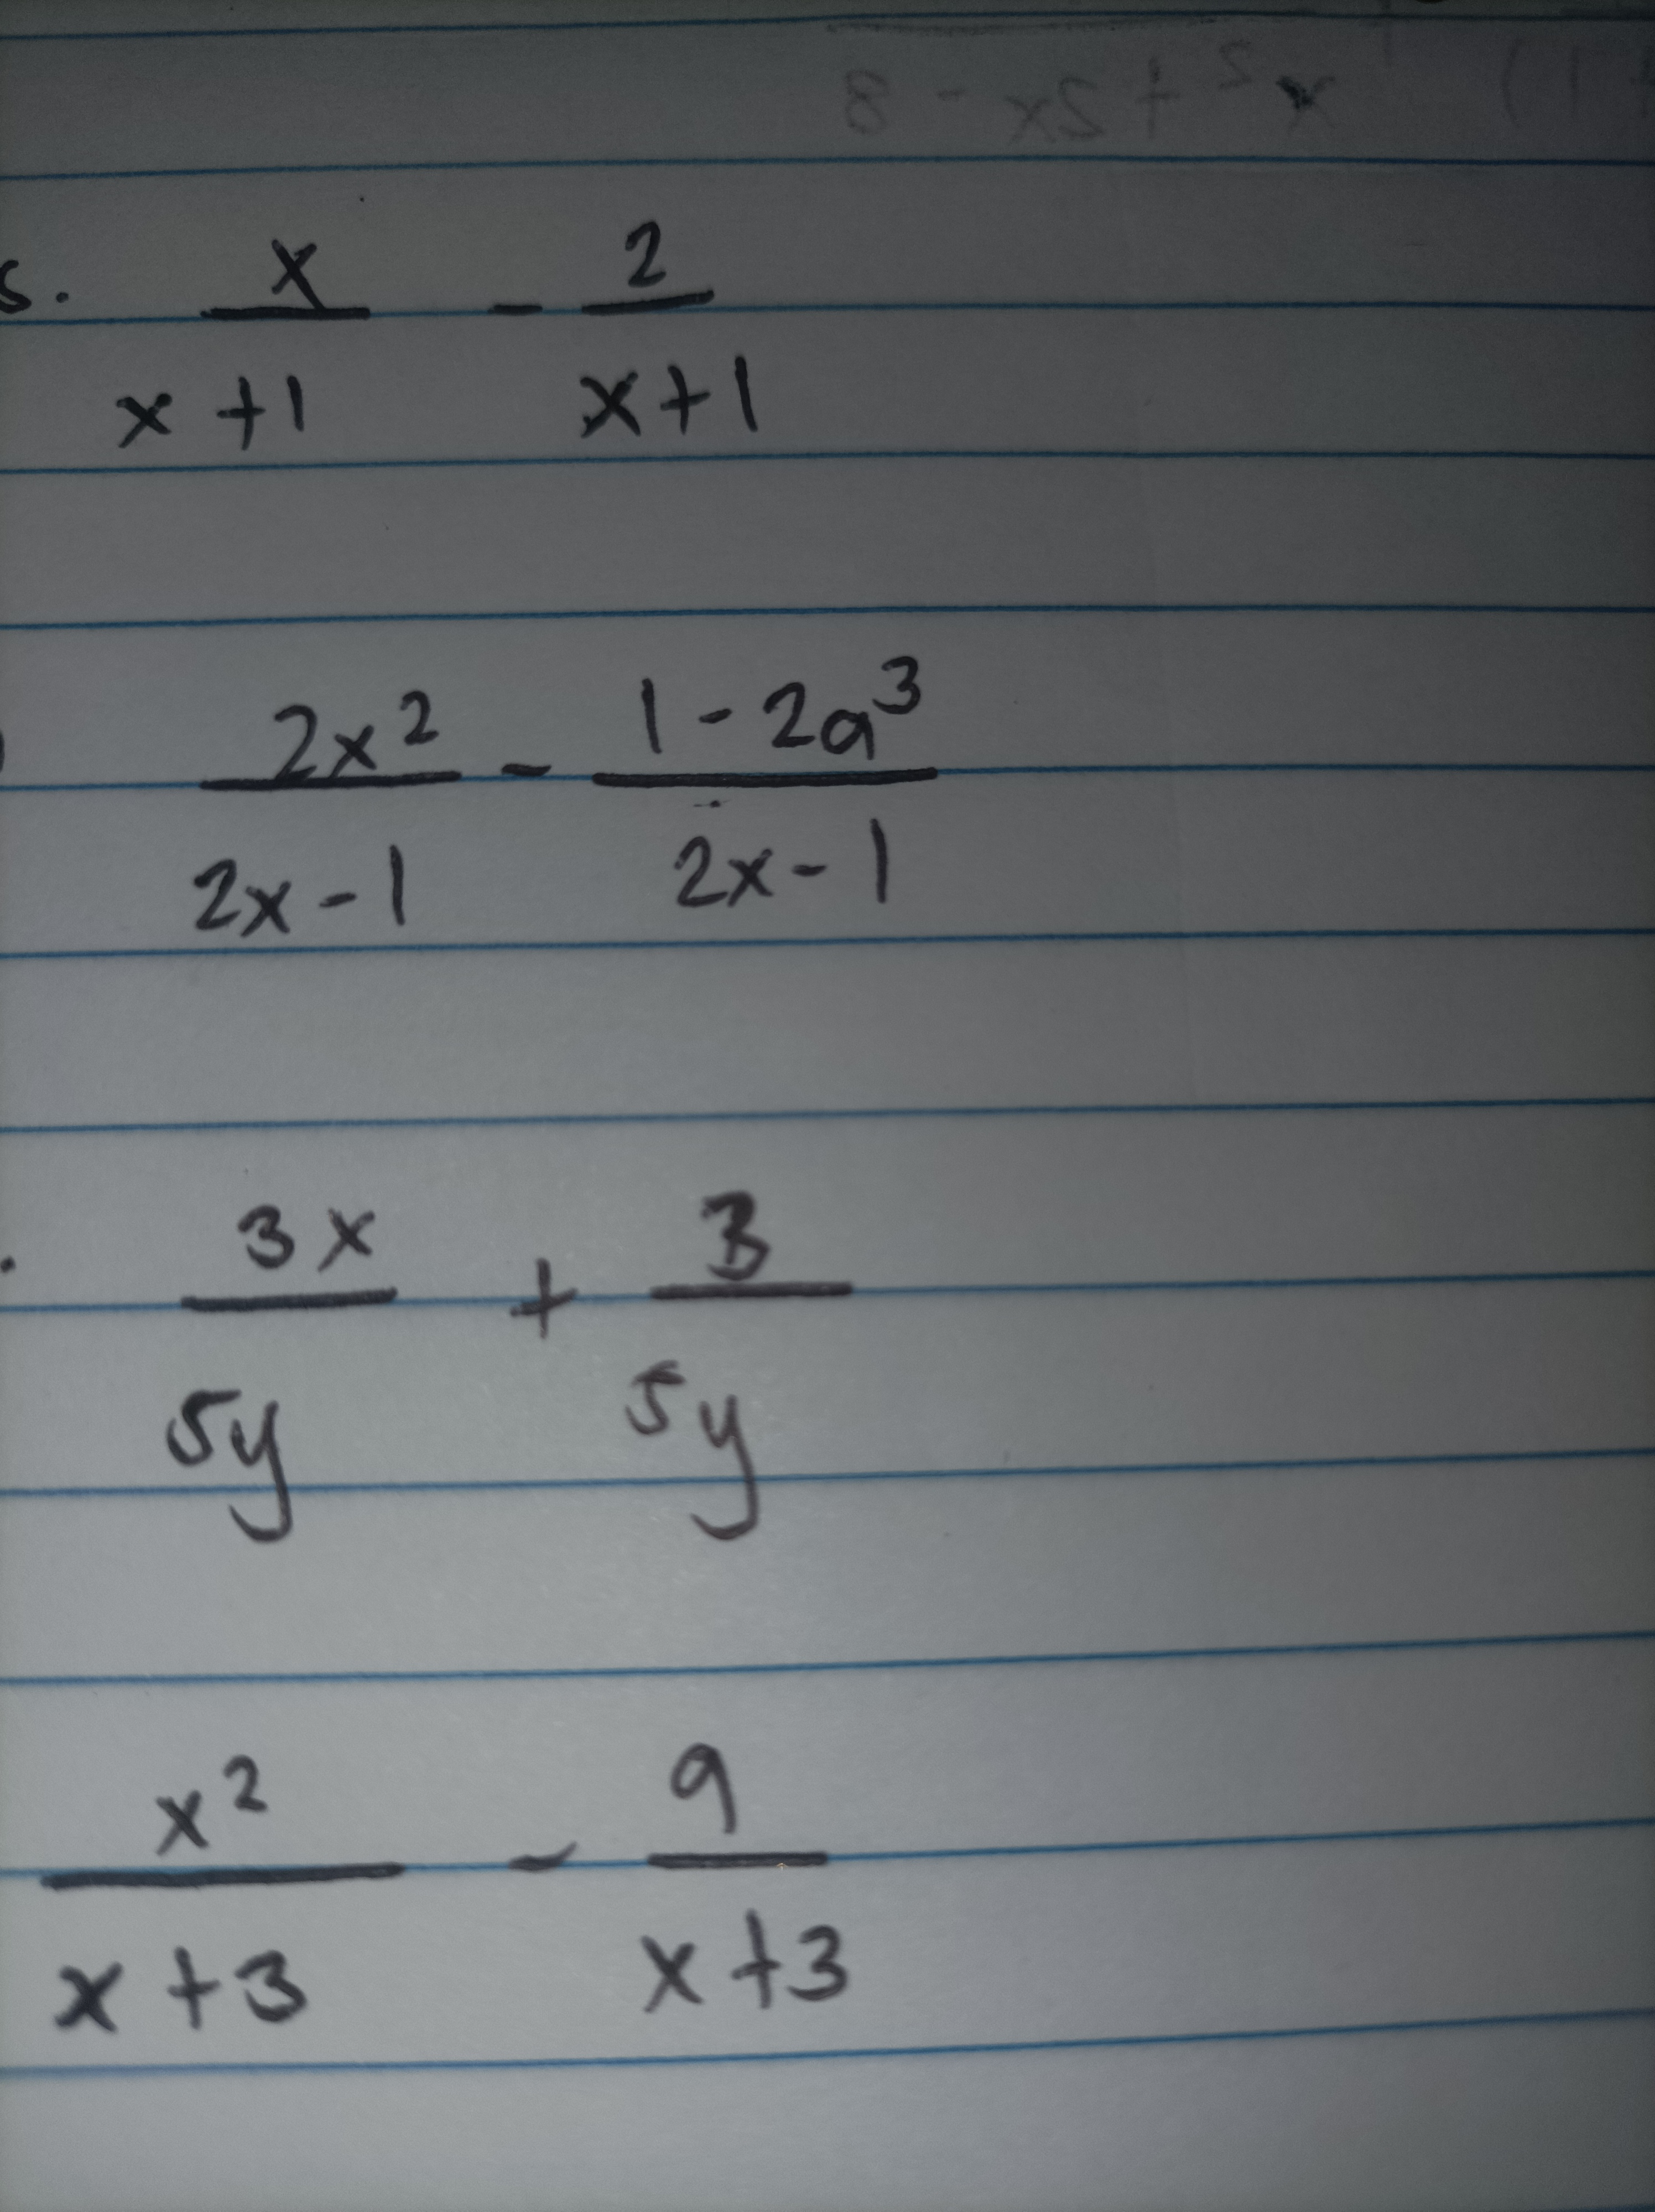 5. x/(x+1) - 2/(x+1)
2x²/(2x-1) - (1-2a³)/(2x-1)
3x/5y + 3/5y
x²/(x+3) - 9/(x+3)